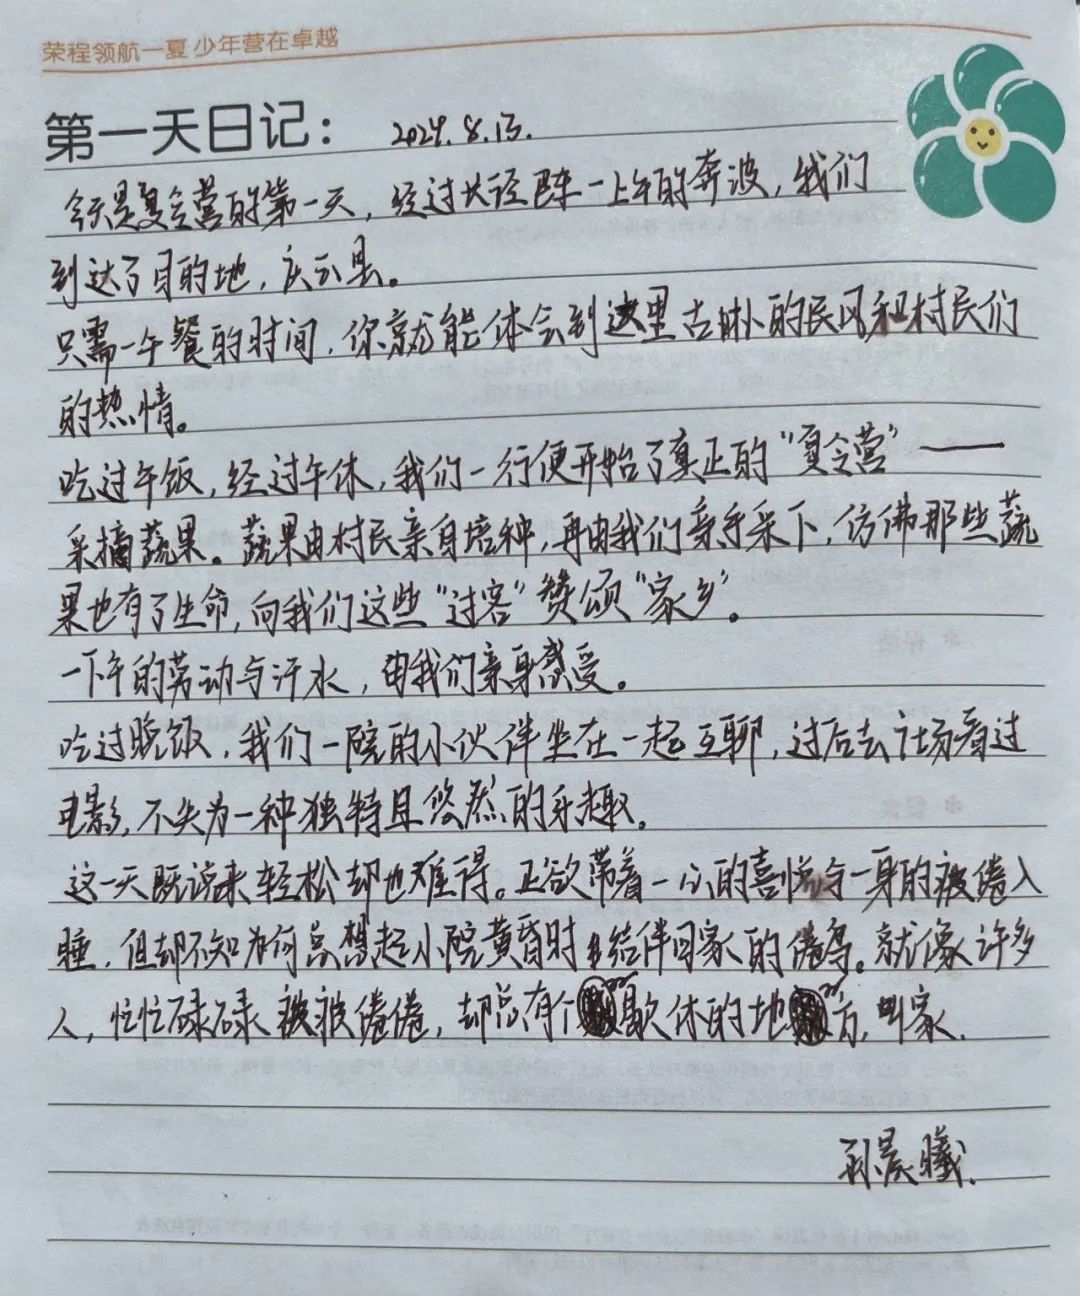 荣程领航一夏 少年营在卓越
第一天日记： 2024.8.13.
今天是夏令营的第一天，经过长途跋一上午的奔波，我们
到达了目的地，庆云县。
只需一午餐的时间，你就能体会到这里古朴的民风和村民们
的热情。
吃过午饭，经过午休，我们一行便开始了真正的“夏令营”——
采摘蔬果。蔬果由村民亲自培种，再由我们亲手采下，仿佛那些蔬
果也有了生命，向我们这些“过客”赞颂“家乡”。
一下午的劳动与汗水，由我们亲身感受。
吃过晚饭，我们一院的小伙伴坐在一起互聊，过后去广场看过
电影，不失为一种独特且悠然的乐趣。
这一天既说来轻松却也难得。正欲带着一心的喜悦与一身的疲倦入
睡，但却不知为何总想起小院黄昏时结伴回家的倦鸟。就像许多
人，忙忙碌碌疲疲倦倦，却总有个歇休的地方，叫家.
孙晨曦.